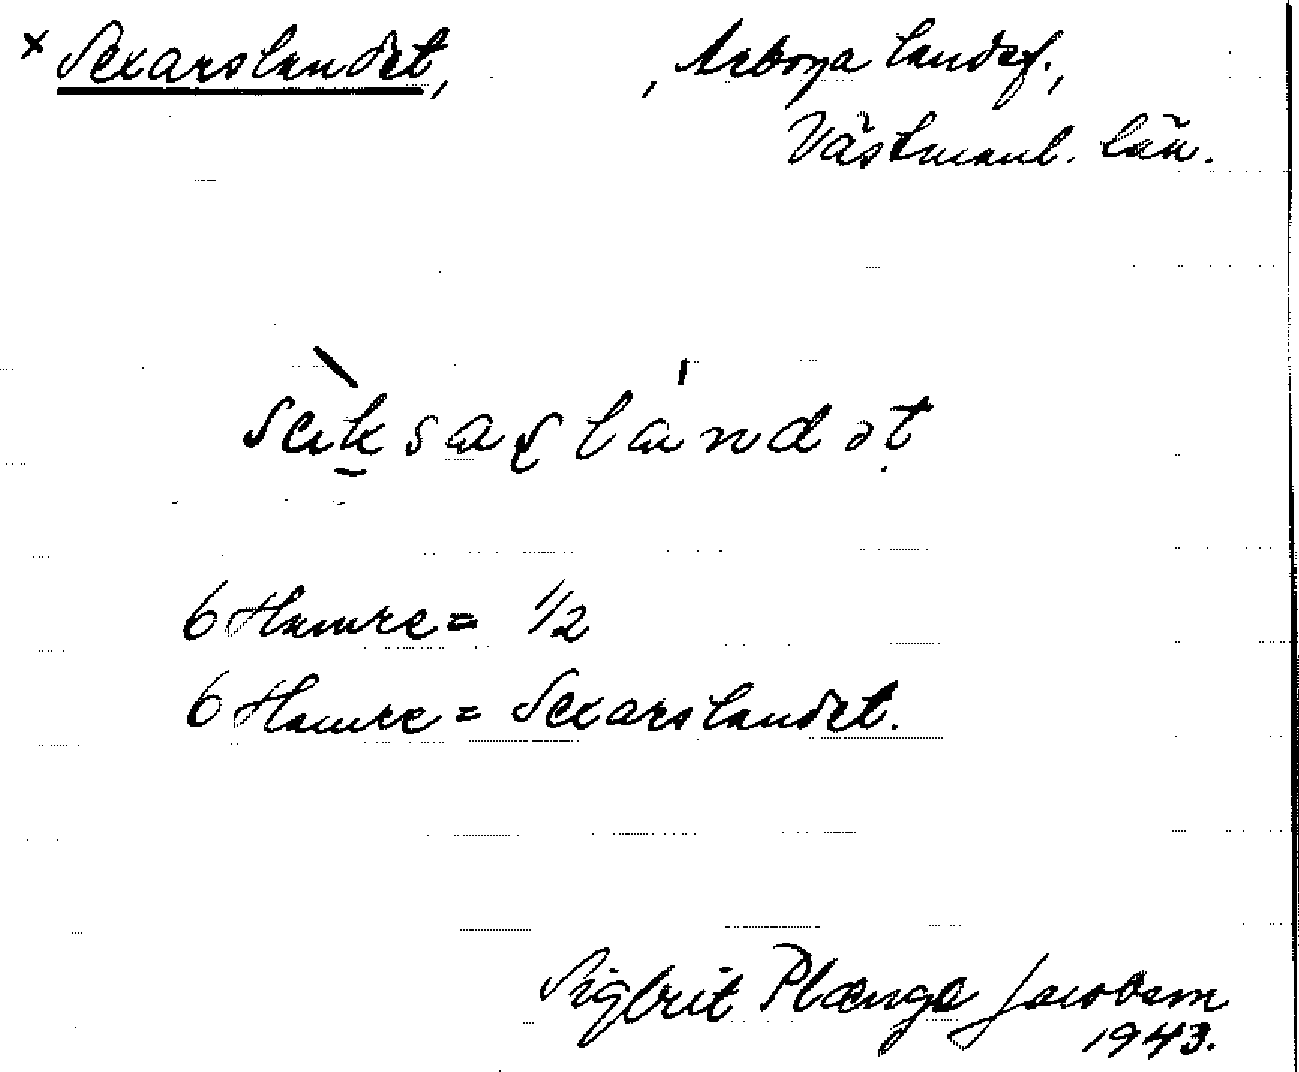 × Sexarslandet, , Arboga landsf.,
Västmanl. län.
säksaṣlandət
6 Hamre = 1/2
6 Hamre = Sexarslandet.
Sigbrit Plænge Jacobson
1943.